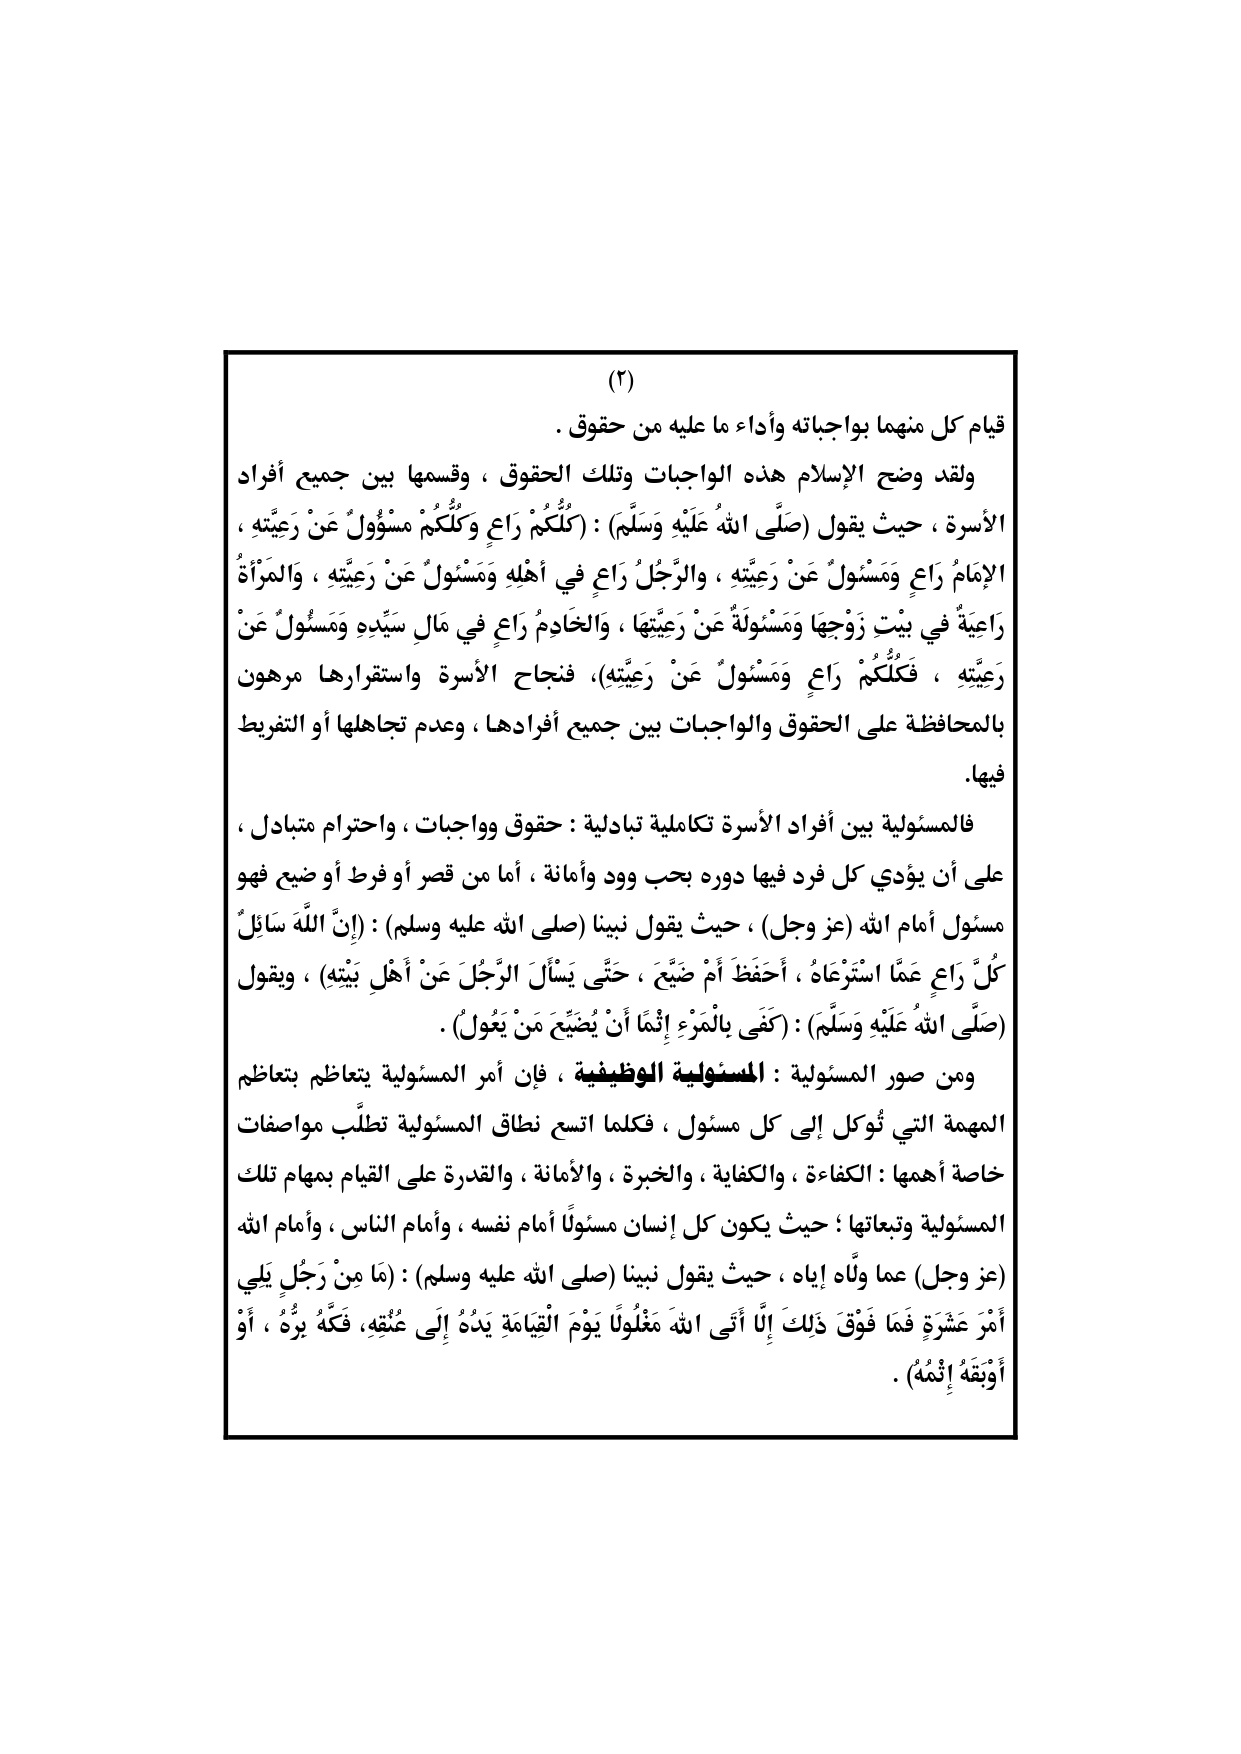 (٢)
قيام كل منهما بواجباته وأداء ما عليه من حقوق .
ولقد وضح الإسلام هذه الواجبات وتلك الحقوق ، وقسمها بين جميع أفراد
الأسرة ، حيث يقول (صَلَّى اللهُ عَلَيْهِ وَسَلَّمَ) : (كُلُّكُمْ رَاعٍ وَكُلُّكُمْ مسْؤُولٌ عَنْ رَعِيَّتهِ ،
الإمَامُ رَاعٍ وَمَسْئولٌ عَنْ رَعِيَّتِهِ ، والرَّجُلُ رَاعٍ في أهْلِهِ وَمَسْئولٌ عَنْ رَعِيَّتِهِ ، وَالمَرْأةُ
رَاعِيَةٌ في بيْتِ زَوْجِهَا وَمَسْئولَةٌ عَنْ رَعِيَّتِهَا ، وَالخَادِمُ رَاعٍ في مَالِ سَيِّدِهِ وَمَسئُولٌ عَنْ
رَعِيَّتِهِ ، فَكُلُّكُمْ رَاعٍ وَمَسْئولٌ عَنْ رَعِيَّتِهِ)، فنجاح الأسرة واستقرارهـا مرهون
بالمحافظـة على الحقوق والواجبـات بين جميع أفرادهـا ، وعدم تجاهلها أو التفريط
فيها.
فالمسئولية بين أفراد الأسرة تكاملية تبادلية : حقوق وواجبات ، واحترام متبادل ،
على أن يؤدي كل فرد فيها دوره بحب وود وأمانة ، أما من قصر أو فرط أو ضيع فهو
مسئول أمام الله (عز وجل) ، حيث يقول نبينا (صلى الله عليه وسلم) : (إِنَّ اللَّهَ سَائِلٌ
كُلَّ رَاعٍ عَمَّا اسْتَرْعَاهُ ، أَحَفَظَ أَمْ ضَيَّعَ ، حَتَّى يَسْأَلَ الرَّجُلَ عَنْ أَهْلِ بَيْتِهِ) ، ويقول
(صَلَّى اللهُ عَلَيْهِ وَسَلَّمَ) : (كَفَى بِالْمَرْءِ إِثْمًا أَنْ يُضَيِّعَ مَنْ يَعُولُ) .
ومن صور المسئولية : المسئولية الوظيفية ، فإن أمر المسئولية يتعاظم بتعاظم
المهمة التي تُوكل إلى كل مسئول ، فكلما اتسع نطاق المسئولية تطلَّب مواصفات
خاصة أهمها : الكفاءة ، والكفاية ، والخبرة ، والأمانة ، والقدرة على القيام بمهام تلك
المسئولية وتبعاتها ؛ حيث يكون كل إنسان مسئولًا أمام نفسه ، وأمام الناس ، وأمام الله
(عز وجل) عما ولَّاه إياه ، حيث يقول نبينا (صلى الله عليه وسلم) : (مَا مِنْ رَجُلٍ يَلِي
أَمْرَ عَشَرَةٍ فَمَا فَوْقَ ذَلِكَ إِلَّا أَتَى اللهَ مَغْلُولًا يَوْمَ الْقِيَامَةِ يَدُهُ إِلَى عُنُقِهِ، فَكَّهُ بِرُّهُ ، أَوْ
أَوْبَقَهُ إِثْمُهُ) .